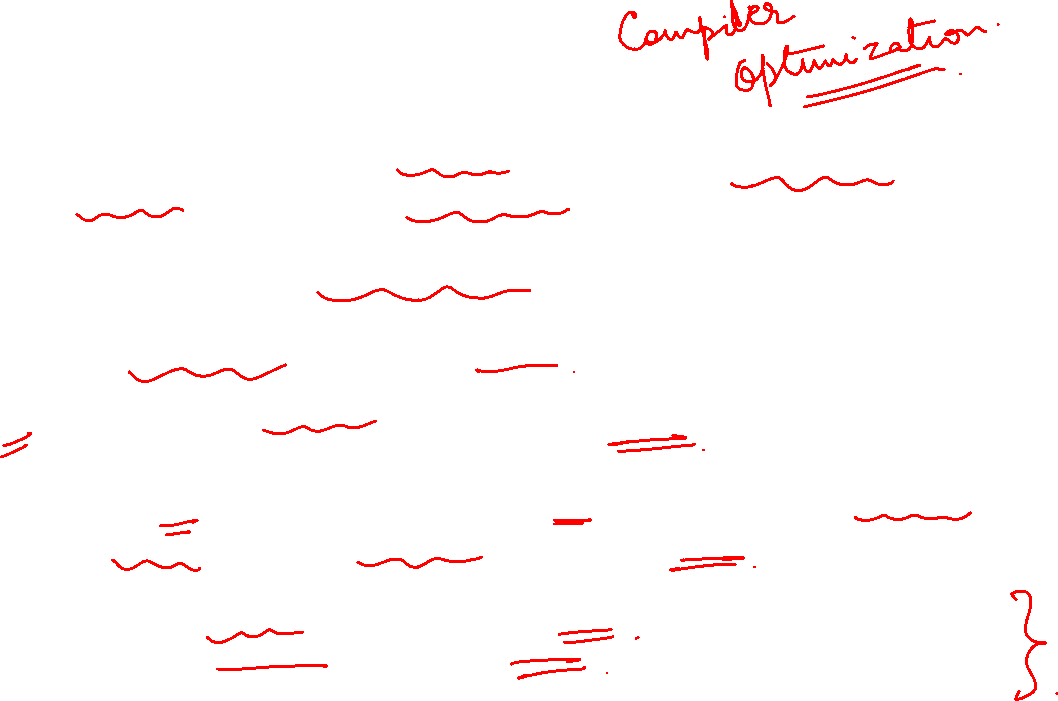 Compiler
Optimization.